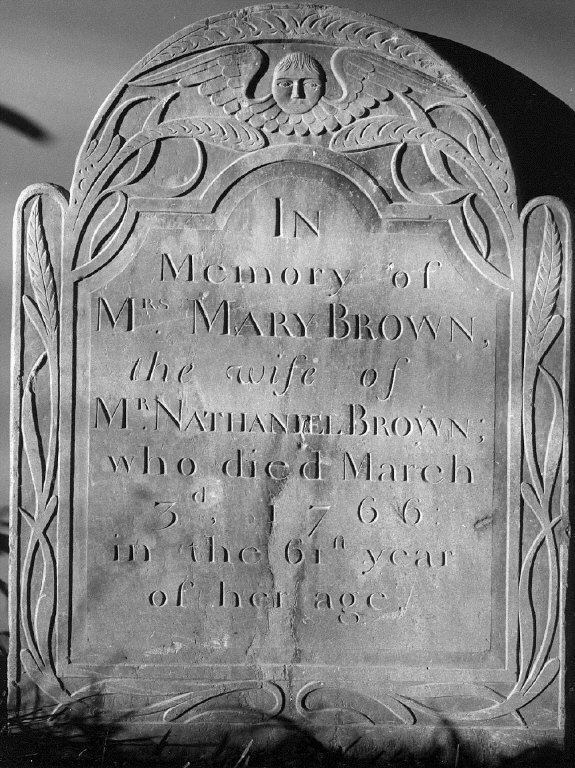 IN
Memory of
Mrs. MARY BROWN,
the wife of
Mr. NATHANIEL BROWN;
who died March
3d, 1766:
in the 61st year
of her age.